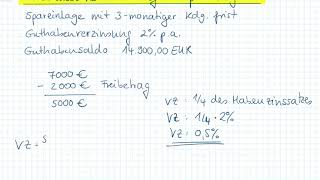 Spareinlage mit 3-monatiger Kdg. frist
Guthabenverzinsung 2% p.a.
Guthabensaldo 14.900,00 EUR
7000 €
- 2000 € Freibetrag
5000 €
VZ: 1/4 des Habenzinssatzes
VZ: 1/4 · 2%
VZ: 0,5%
VZ = 5